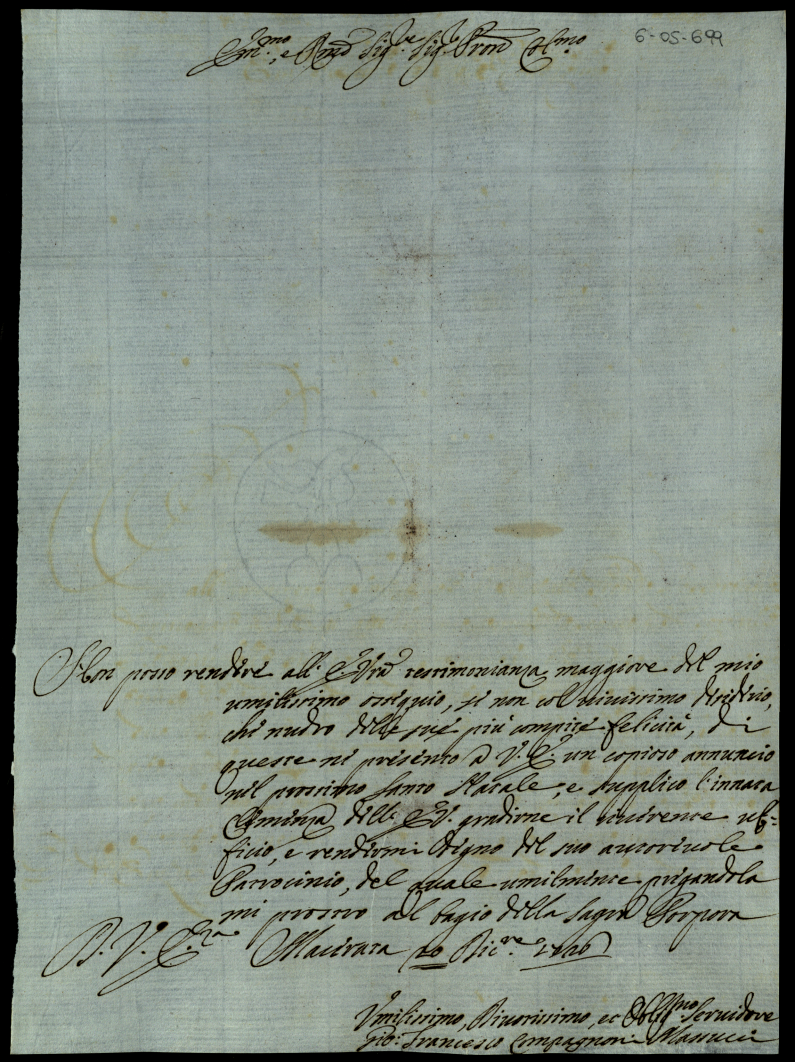 6-05-699
Em.mo, e Rmo Sig.re Sig.re Pron Col.mo
Non posso rendere all' E. Vra testimonianza maggiore del mio
umilissimo ossequio, se non col vivissimo desiderio,
che nudro delle sue più compite felicità, di
queste ne presento a V. E. un copioso annuncio
nel prossimo santo Natale, e supplico l'innata
Clemenza dell' E. V. gradirne il riverente uf=
ficio, e rendermi degno del suo autorevole
Patrocinio, del quale umilmente pregandola
mi prostro al bagio della Sagra Porpora
D. V. E.za Macerata 20 Dic.re
Umilissimo, Divotissimo, et Obblig.mo Servidore
Gio: Francesco Compagnoni Marucci